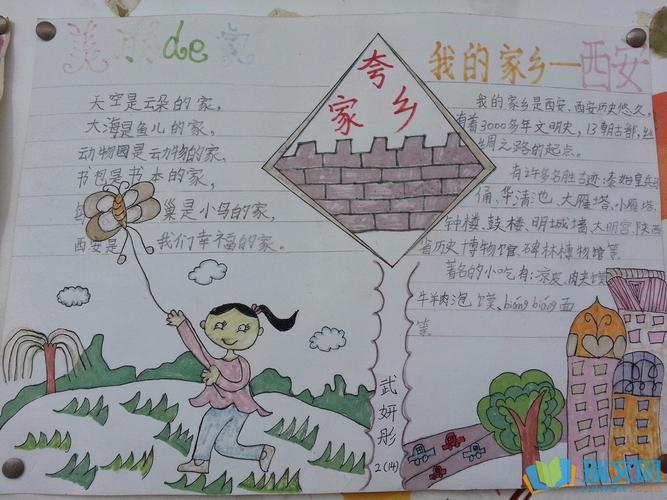 美丽de家
天空是云朵的家，
大海是鱼儿的家，
动物园是动物的家，
书包是书本的家，
巢是小鸟的家，
西安是我们幸福的家。
夸
家乡
我的家乡—西安
我的家乡是西安，西安历史悠久，
有着3000多年文明史，13朝古都，丝
绸之路的起点。
有许多名胜古迹：秦始皇兵马
俑、华清池、大雁塔、小雁塔、
钟楼、鼓楼、明城墙、大明宫、陕西
省历史博物馆、碑林博物馆等。
著名的小吃有：凉皮、肉夹馍、
牛羊肉泡馍、biángbiáng面
等
武妍彤
2（14）